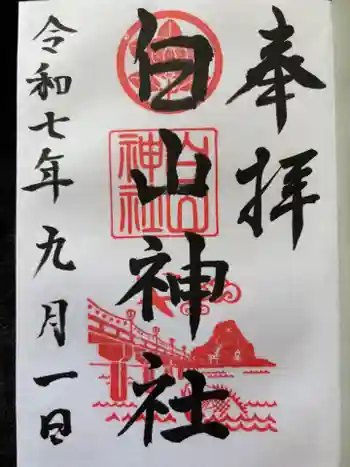 奉拝
白山神社
白山
神社
令和七年九月一日